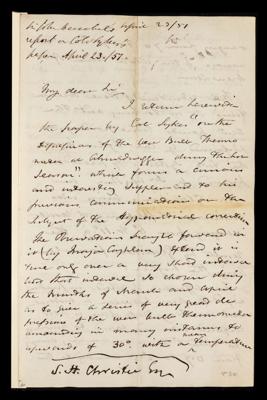 Sir John Herschel's April 23/51
report on Col. Sykes's
paper April 23./51.
My dear Sir,
I return herewith
the paper by Col Sykes "on the
depression of the Wet Bulb Thermo
meter at Ahmednugger during the hot
Season" which forms a curious
and interesting Supplement to his
previous communications on the
Subject of the
The Observations brought forward in
it (by Major Coghlan) extend it is
true only over a very short interval
but that interval is chosen during
the months of March and April
as to give a series of very great de
pressions of the wet bulb thermometer
amounting in many instances to
upwards of 30° with a mean temperature
S. H. Christie Esq